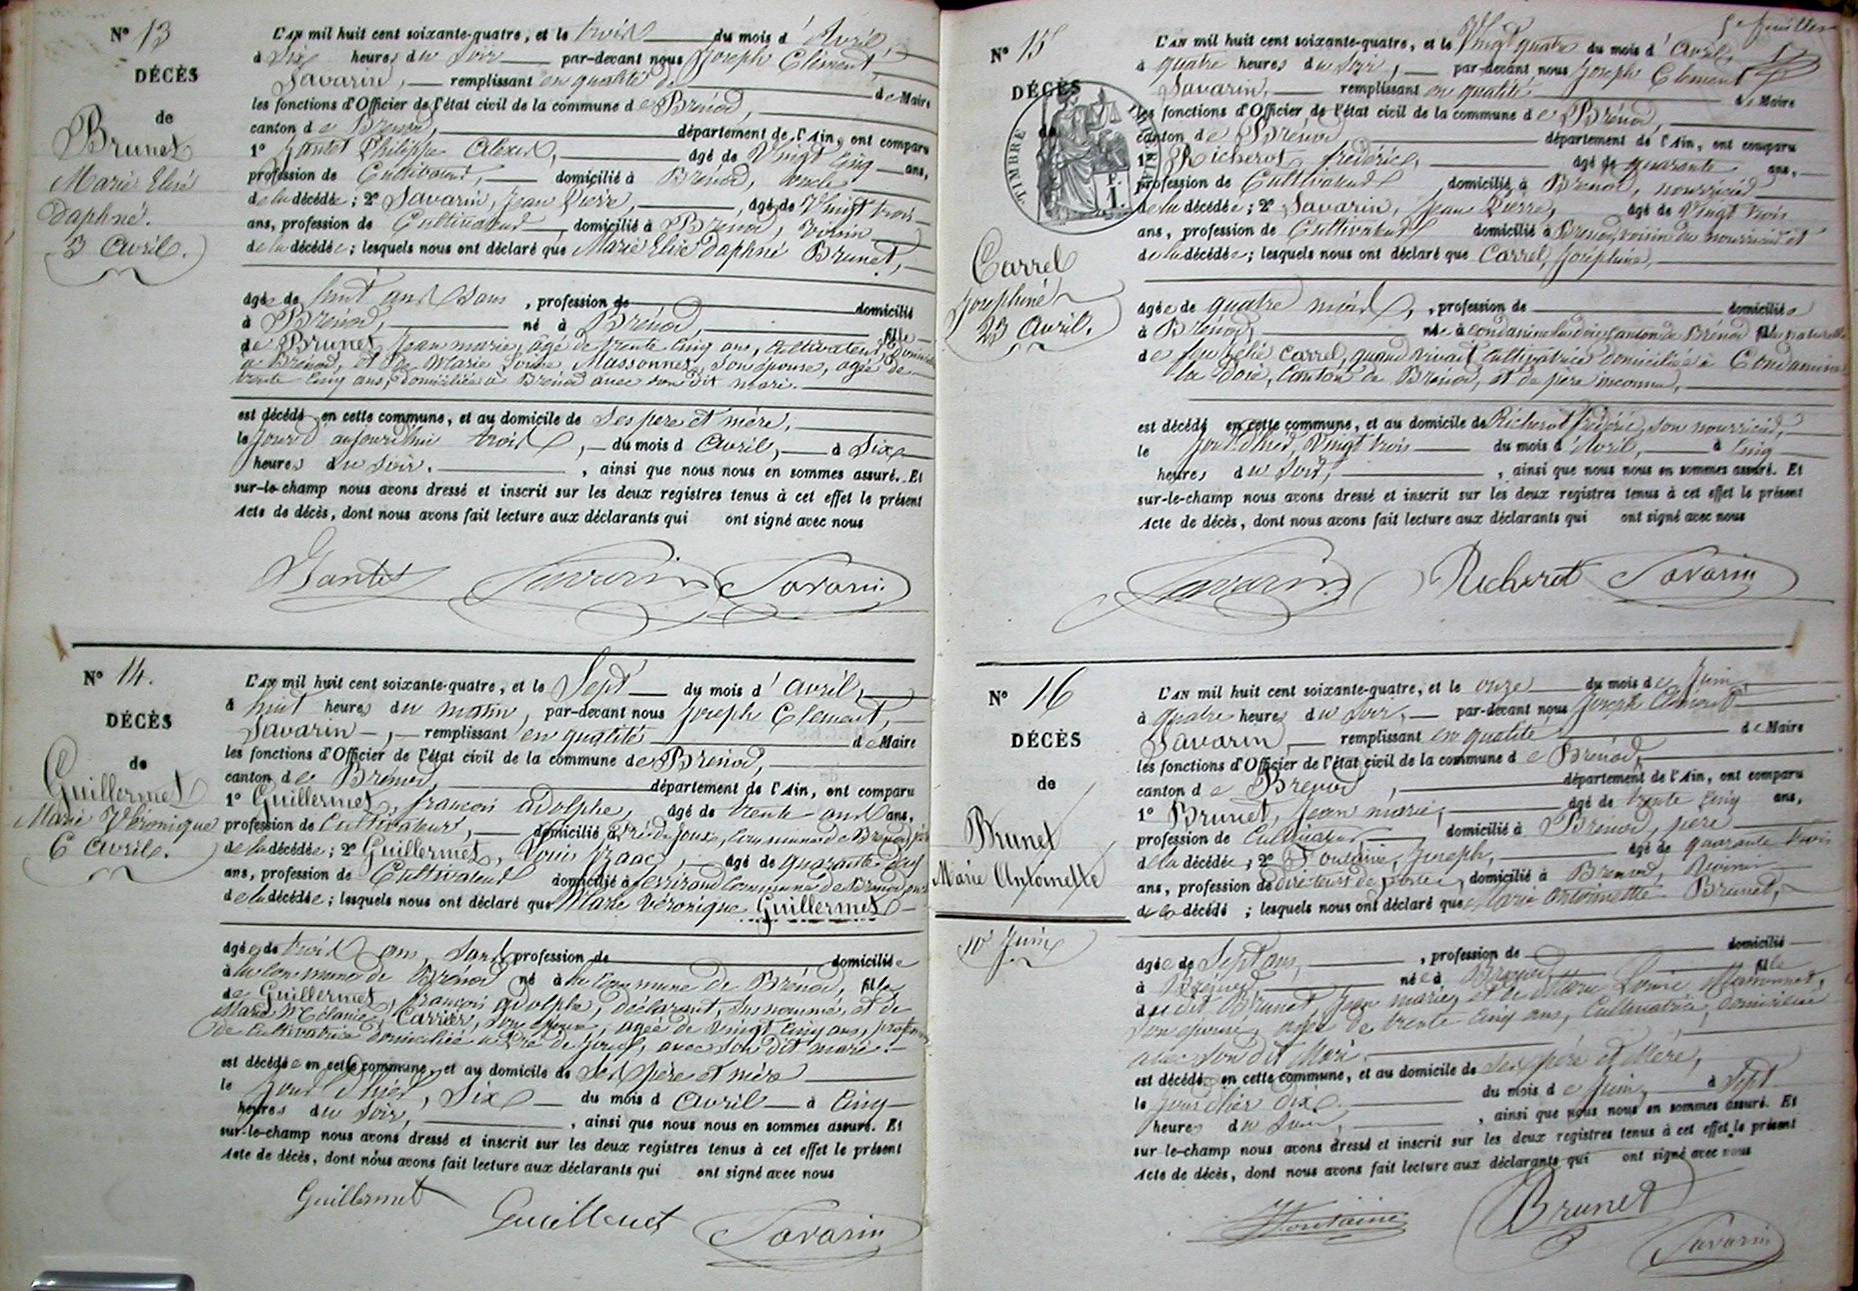 N° 13
DÉCÈS
de
Brunet
Marie Elisé
Daphné.
3 Avril.
L'AN mil huit cent soixante-quatre, et le trois du mois d'Avril,
à Six heures du Soir par-devant nous Joseph Clément,
Savarin, remplissant en qualité de de Maire
les fonctions d'Officier de l'état civil de la commune de Brénod,
canton de Brénod, département de l'Ain, ont comparu
1° Jantet Philippe Alexis, âgé de Vingt Cinq ans,
profession de Cultivateur, domicilié à Brénod, oncle
de la décédée; 2° Savarin, Jean Pierre, âgé de Vingt trois
ans, profession de Cultivateur domicilié à Brénod, voisin
de la décédée; lesquels nous ont déclaré que Marie Elisé Daphné Brunet,
âgée de huit ans Sans, profession de domicilié
à Brénod, né à Brénod, fille
de Brunet Jean marie, agé de trente Cinq ans, Cultivateur, domicilié
a Brénod, et de Marie Louise Massonnet, Son épouse, agée de
trente Cinq ans, domiciliée a Brénod avec son dit mari.
est décédé en cette commune, et au domicile de Ses pere et mére,
le jour d'aujourdhui trois, du mois d'Avril, à Six
heures du Soir, ainsi que nous nous en sommes assuré. Et
sur-le-champ nous avons dressé et inscrit sur les deux registres tenus à cet effet le présent
Acte de décès, dont nous avons fait lecture aux déclarants qui ont signé avec nous
Jantet Savarin Savarin
N° 14.
DÉCÈS
de
Guillermet
Marie Véronique
6 Avril.
L'AN mil huit cent soixante-quatre, et le Sept du mois d'Avril,
à huit heures du matin, par-devant nous Joseph Clément,
Savarin, remplissant en qualité de Maire
les fonctions d'Officier de l'état civil de la commune de Brénod,
canton de Brénod, département de l'Ain, ont comparu
1° Guillermet, françois adolphe, âgé de trente ans ans,
profession de Cultivateur, domicilié à Commune de Brénod
de la décédée; 2° Guillermet, Louis Isaac, âgé de quarante
ans, profession de Cultivateur domicilié à Commune de Brénod
de la décédée; lesquels nous ont déclaré que Marie Véronique Guillermet
âgée de trois ans, Sans profession de domiciliée
à la Commune de Brénod né à la Commune de Brénod, fille
de Guillermet, françois adolphe, déclarant, Sus nommé, et de
Marie Mélanie, Carrier, son épouse, agée de vingt Cinq ans, profession
de Cultivatrice domiciliée a avec Son dit mari.
est décédée en cette commune, et au domicile de Ses pére et mére
le Jour d'hier, Six du mois d'Avril à Cinq
heures du Soir, ainsi que nous nous en sommes assuré. Et
sur-le-champ nous avons dressé et inscrit sur les deux registres tenus à cet effet le présent
Acte de décès, dont nous avons fait lecture aux déclarants qui ont signé avec nous
Guillermet Guillermet Savarin
5e feuillet
N° 15
DÉCÈS
de
TIMBRE IMPÉRIAL
F. 1.
Carrel
Joséphine
23 Avril.
L'AN mil huit cent soixante-quatre, et le Vingt quatre du mois d'Avril,
à quatre heures du Soir, par-devant nous Joseph Clément
Savarin, remplissant en qualité de Maire
les fonctions d'Officier de l'état civil de la commune de Brénod,
canton de Brénod département de l'Ain, ont comparu
1° Richerot frédéric, âgé de quarante ans,
profession de Cultivateur domicilié à Brénod, nourricier
de la décédée; 2° Savarin, Jean Pierre, âgé de Vingt trois
ans, profession de Cultivateur domicilié à Brénod, voisin du nourricier et
de la décédée; lesquels nous ont déclaré que Carrel, Joséphine,
âgée de quatre mois, profession de domiciliée
à Brénod, née à Condamine la doie, Canton de Brénod fille naturelle
de Carrel, quand vivait Cultivatrice domiciliée à Condamine
la Doie, Canton de Brénod, et de pére inconnu,
est décédé en cette commune, et au domicile de Richerot frédéric, son nourricier,
le Jour d'hier, Vingt trois du mois d'Avril, à Cinq
heures du Soir, ainsi que nous nous en sommes assuré. Et
sur-le-champ nous avons dressé et inscrit sur les deux registres tenus à cet effet le présent
Acte de décès, dont nous avons fait lecture aux déclarants qui ont signé avec nous
Savarin Richerot Savarin
N° 16
DÉCÈS
de
Brunet
Marie Antoinette
10 Juin
L'AN mil huit cent soixante-quatre, et le onze du mois de Juin,
à quatre heures du Soir, par-devant nous Joseph Clément
Savarin remplissant en qualité de Maire
les fonctions d'Officier de l'état civil de la commune de Brénod,
canton de Brénod, département de l'Ain, ont comparu
1° Brunet, Jean marie, âgé de trente Cinq ans,
profession de Cultivateur domicilié à Brénod, pere
de la décédée; 2° Fontaine, Joseph, âgé de quarante trois
ans, profession de directeur de poste, domicilié à Brénod, Voisin
de la décédé; lesquels nous ont déclaré que Marie Antoinette Brunet,
âgée de Sept ans, profession de domicilié
à Brénod, née à Brénod fille
du dit Brunet Jean marie, et de Marie Louise Massonnet,
Son épouse, agée de trente Cinq ans, Cultivatrice, domiciliée
avec Son dit Mari.
est décédé en cette commune, et au domicile de Ses pére et Mere,
le Jour d'hier dix du mois de Juin, à Sept
heures du Soir, ainsi que nous nous en sommes assuré. Et
sur-le-champ nous avons dressé et inscrit sur les deux registres tenus à cet effet le présent
Acte de décès, dont nous avons fait lecture aux déclarants qui ont signé avec nous
Fontaine Brunet Savarin